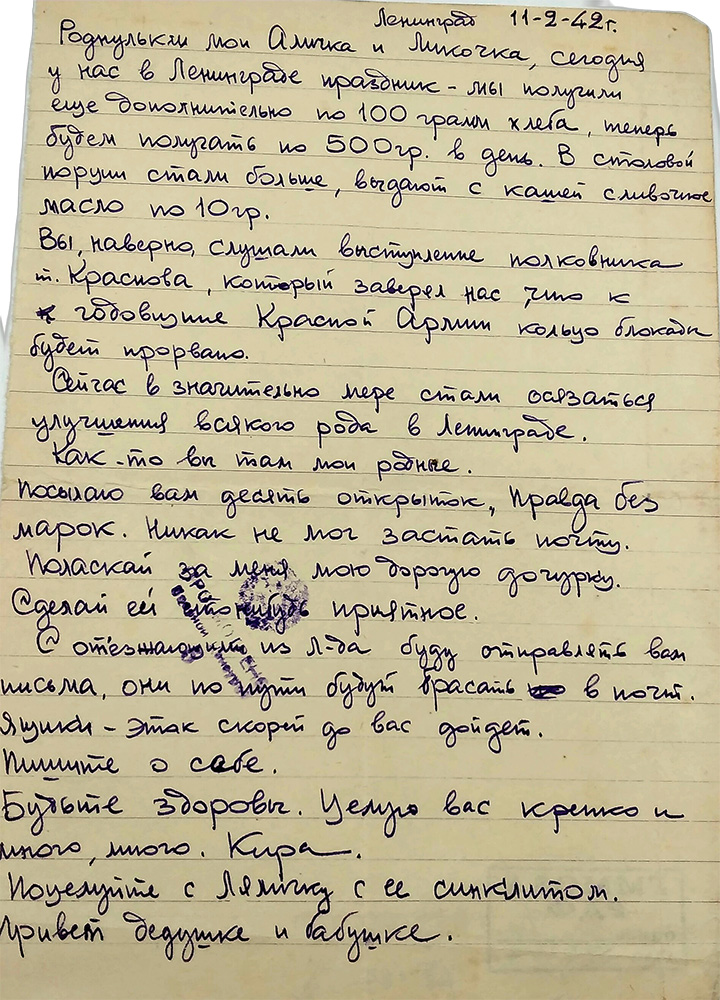 Ленинград 11-2-42г.
Роднульки мои Аличка и Ликочка, сегодня
у нас в Ленинграде праздник - мы получили
еще дополнительно по 100 грамм хлеба, теперь
будем получать по 500гр. в день. В столовой
порции стали больше, выдают с кашей сливочное
масло по 10гр.
Вы, наверно, слушали выступление полковника
т. Краснова, который заверел нас, что к
годовщине Красной Армии кольцо блокады
будет прорвано.
Сейчас в значительно мере стали осязаться
улучшения всякого рода в Ленинграде.
Как-то вы там мои родные.
Посылаю вам десять открыток, правда без
марок. Никак не мог застать почту.
Поласкай за меня мою дорогую дочурку.
Сделай ей что нибудь приятное.
С отъезжающими из Л-да буду отправлять вам
письма, они по пути будут брасать в почт.
Ящики - этак скорей до вас дойдет.
Пишите о себе.
Будьте здоровы. Целую вас крепко и
много, много. Кира.
Поцелуйте с Лялечку с ее синклитом.
Привет дедушке и бабушке.